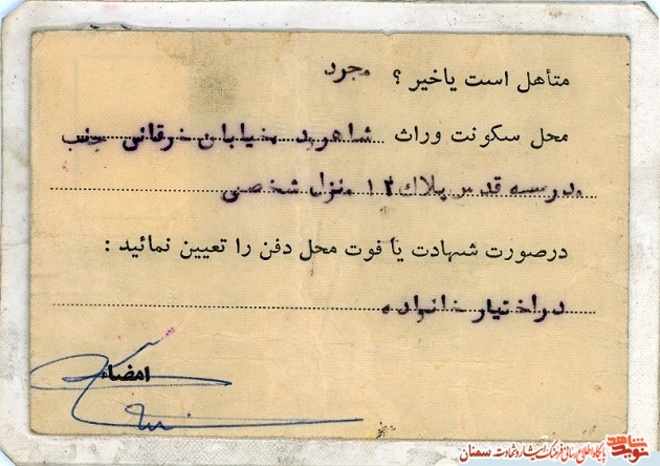 متأهل است یا خیر ؟ مجرد
محل سکونت وراث شاهرود خیابان خرقانی جنب
مدرسه قدس پلاک ۱۲ منزل شخصی
درصورت شهادت یا فوت محل دفن را تعیین نمائید :
در اختیار خانواده
امضاء
نوید شاهد پایگاه اطلاع رسانی فرهنگ ایثار و شهادت سمنان